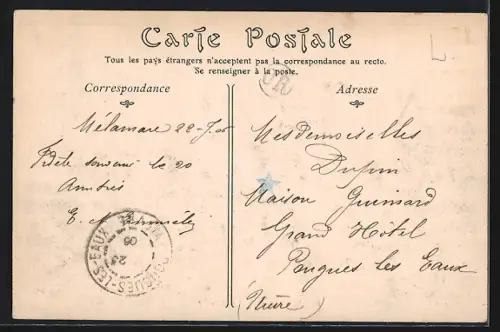 Carte Postale
Tous les pays étrangers n'acceptent pas la correspondance au recto.
Se renseigner à la poste.
Correspondance
Adresse
OR
L
Mélamare 22-7-05
souvenir 20
Amitiés
E.
Mesdemoiselles
Dupin
Maison Guimard
Grand Hôtel
Pougues les Eaux
(Nièvre)
POUGUES-LES-EAUX NIEVRE
23
05